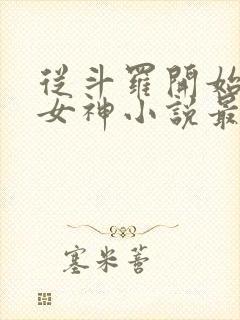 從斗羅開始
女神小說最
塞米蒼